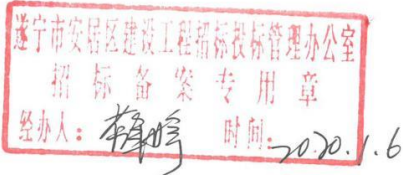 遂宁市安居区建设工程招标投标管理办公室
招标备案专用章
经办人： 时间：2020.1.6